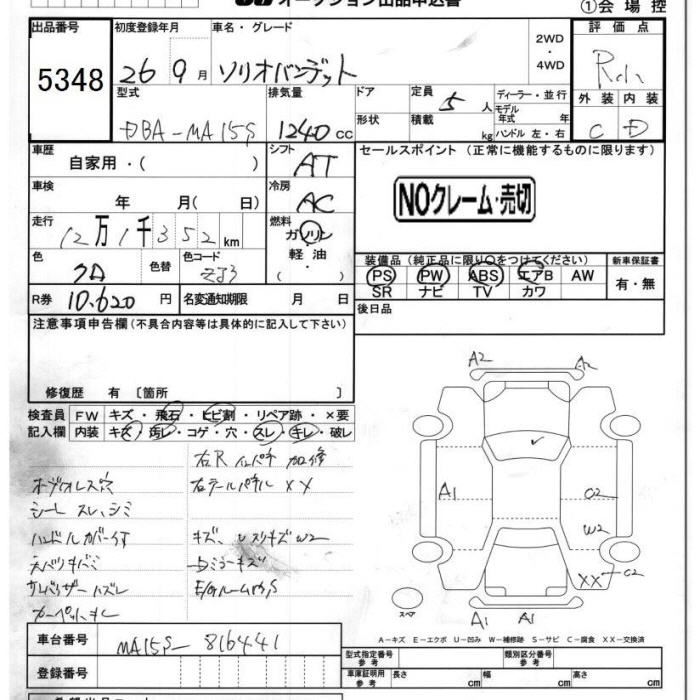 オークション出品申込書
①会場控
出品番号
5348
初度登録年月
26 9月
車名・グレード
ソリオバンデット
2WD・4WD
評価点
型式
DBA-MA15S
排気量
1240cc
ドア
形状
定員
5人
積載
kg
ディーラー・並行
モデル年式 年
ハンドル 左・右
外装 内装
C D
車歴
自家用・( )
シフト
AT
セールスポイント (正常に機能するものに限ります)
NOクレーム・売切
車検
年 月( 日)
冷房
AC
走行
12万1千352km
燃料
ガソリン
軽油
・( )
色
クロ
色替
色コード
ZJ3
装備品 (純正品に限り○をつけてください)
PS PW ABS エアB AW
SR ナビ TV カワ
新車保証書
有・無
R券
10.620円
名変通知期限 月 日
後日品
注意事項申告欄 (不具合内容等は具体的に記入して下さい)
修復歴 有 〔箇所 〕
検査員記入欄
FW キズ・飛石・ヒビ割・リペア跡・×要
内装 キズ・汚レ・コゲ・穴・スレ・キレ・破レ
右R インパネ 加修
右テールパネル XX
シートスレ、シミ
ハンドルカバー付
天バリキバミ
キズ、ウスリキズ W2
サンバイザーハズレ
A2
A1
C2
W2
XX
C2
A1
A1
スペア
A-キズ E-エクボ U-凹み W-補修跡 S-サビ C-腐食 XX-交換済
車台番号
MA15S-816441
登録番号
型式指定番号 参考
類別区分番号 参考
車庫証明用 参考
長さ cm
幅 cm
高さ cm